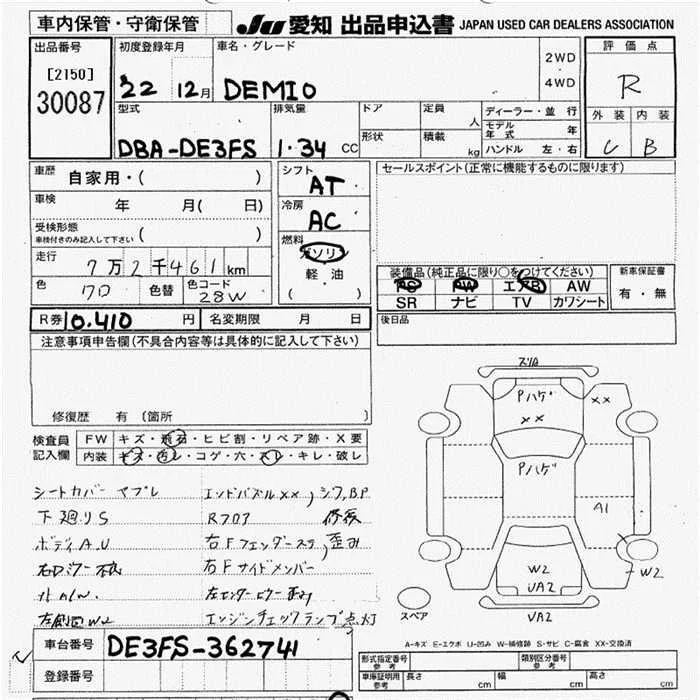 車内保管・守衛保管
JU 愛知 出品申込書 JAPAN USED CAR DEALERS ASSOCIATION
出品番号
[2150]
30087
初度登録年月
22 12月
車名・グレード
DEMIO
2WD
・
4WD
評価点
R
外装 内装
C B
型式
DBA-DE3FS
排気量
1.34 CC
ドア
形状
定員
人
積載
kg
ディーラー・並行
モデル年式 年
ハンドル 左・右
車歴
自家用・( )
車検 年 月( 日)
受検形態
車検付きのみ記入して下さい ( )
走行
7万2千461km
色 クロ 色替 色コード 28W
シフト
AT
冷房
AC
燃料
ガソリン
軽油
( )
セールスポイント(正常に機能するものに限ります)
装備品(純正品に限り○をつけてください)
PS PW エアB AW
SR ナビ TV カワシート
新車保証書
有・無
R券 10.410 円 名変期限 月 日
後日品
注意事項申告欄(不具合内容等は具体的に記入して下さい)
修復歴 有 (箇所
検査員
記入欄
FW キズ・飛石・ヒビ割・リペア跡・X要
内装 キズ・汚レ・コゲ・穴・スレ・キレ・破レ
シートカバー マフレ
下廻りS
ボディA.U
エンドパネルXX
Rフロア 修復
右Fフェンダーステ, 歪み
右Fサイドメンバー
左センターピラー歪み
エンジンチェックランプ点灯
Pハゲ
XX
XX
Pハゲ
A1
W2
UA2
W2
UA2
スペア
A-キズ E-エクボ U-凹み W-補修跡 S-サビ C-腐食 XX-交換済
車台番号 DE3FS-362741
登録番号
形式指定番号
参考
類別区分番号
参考
車庫証明用
参考
長さ cm 幅 cm 高さ cm